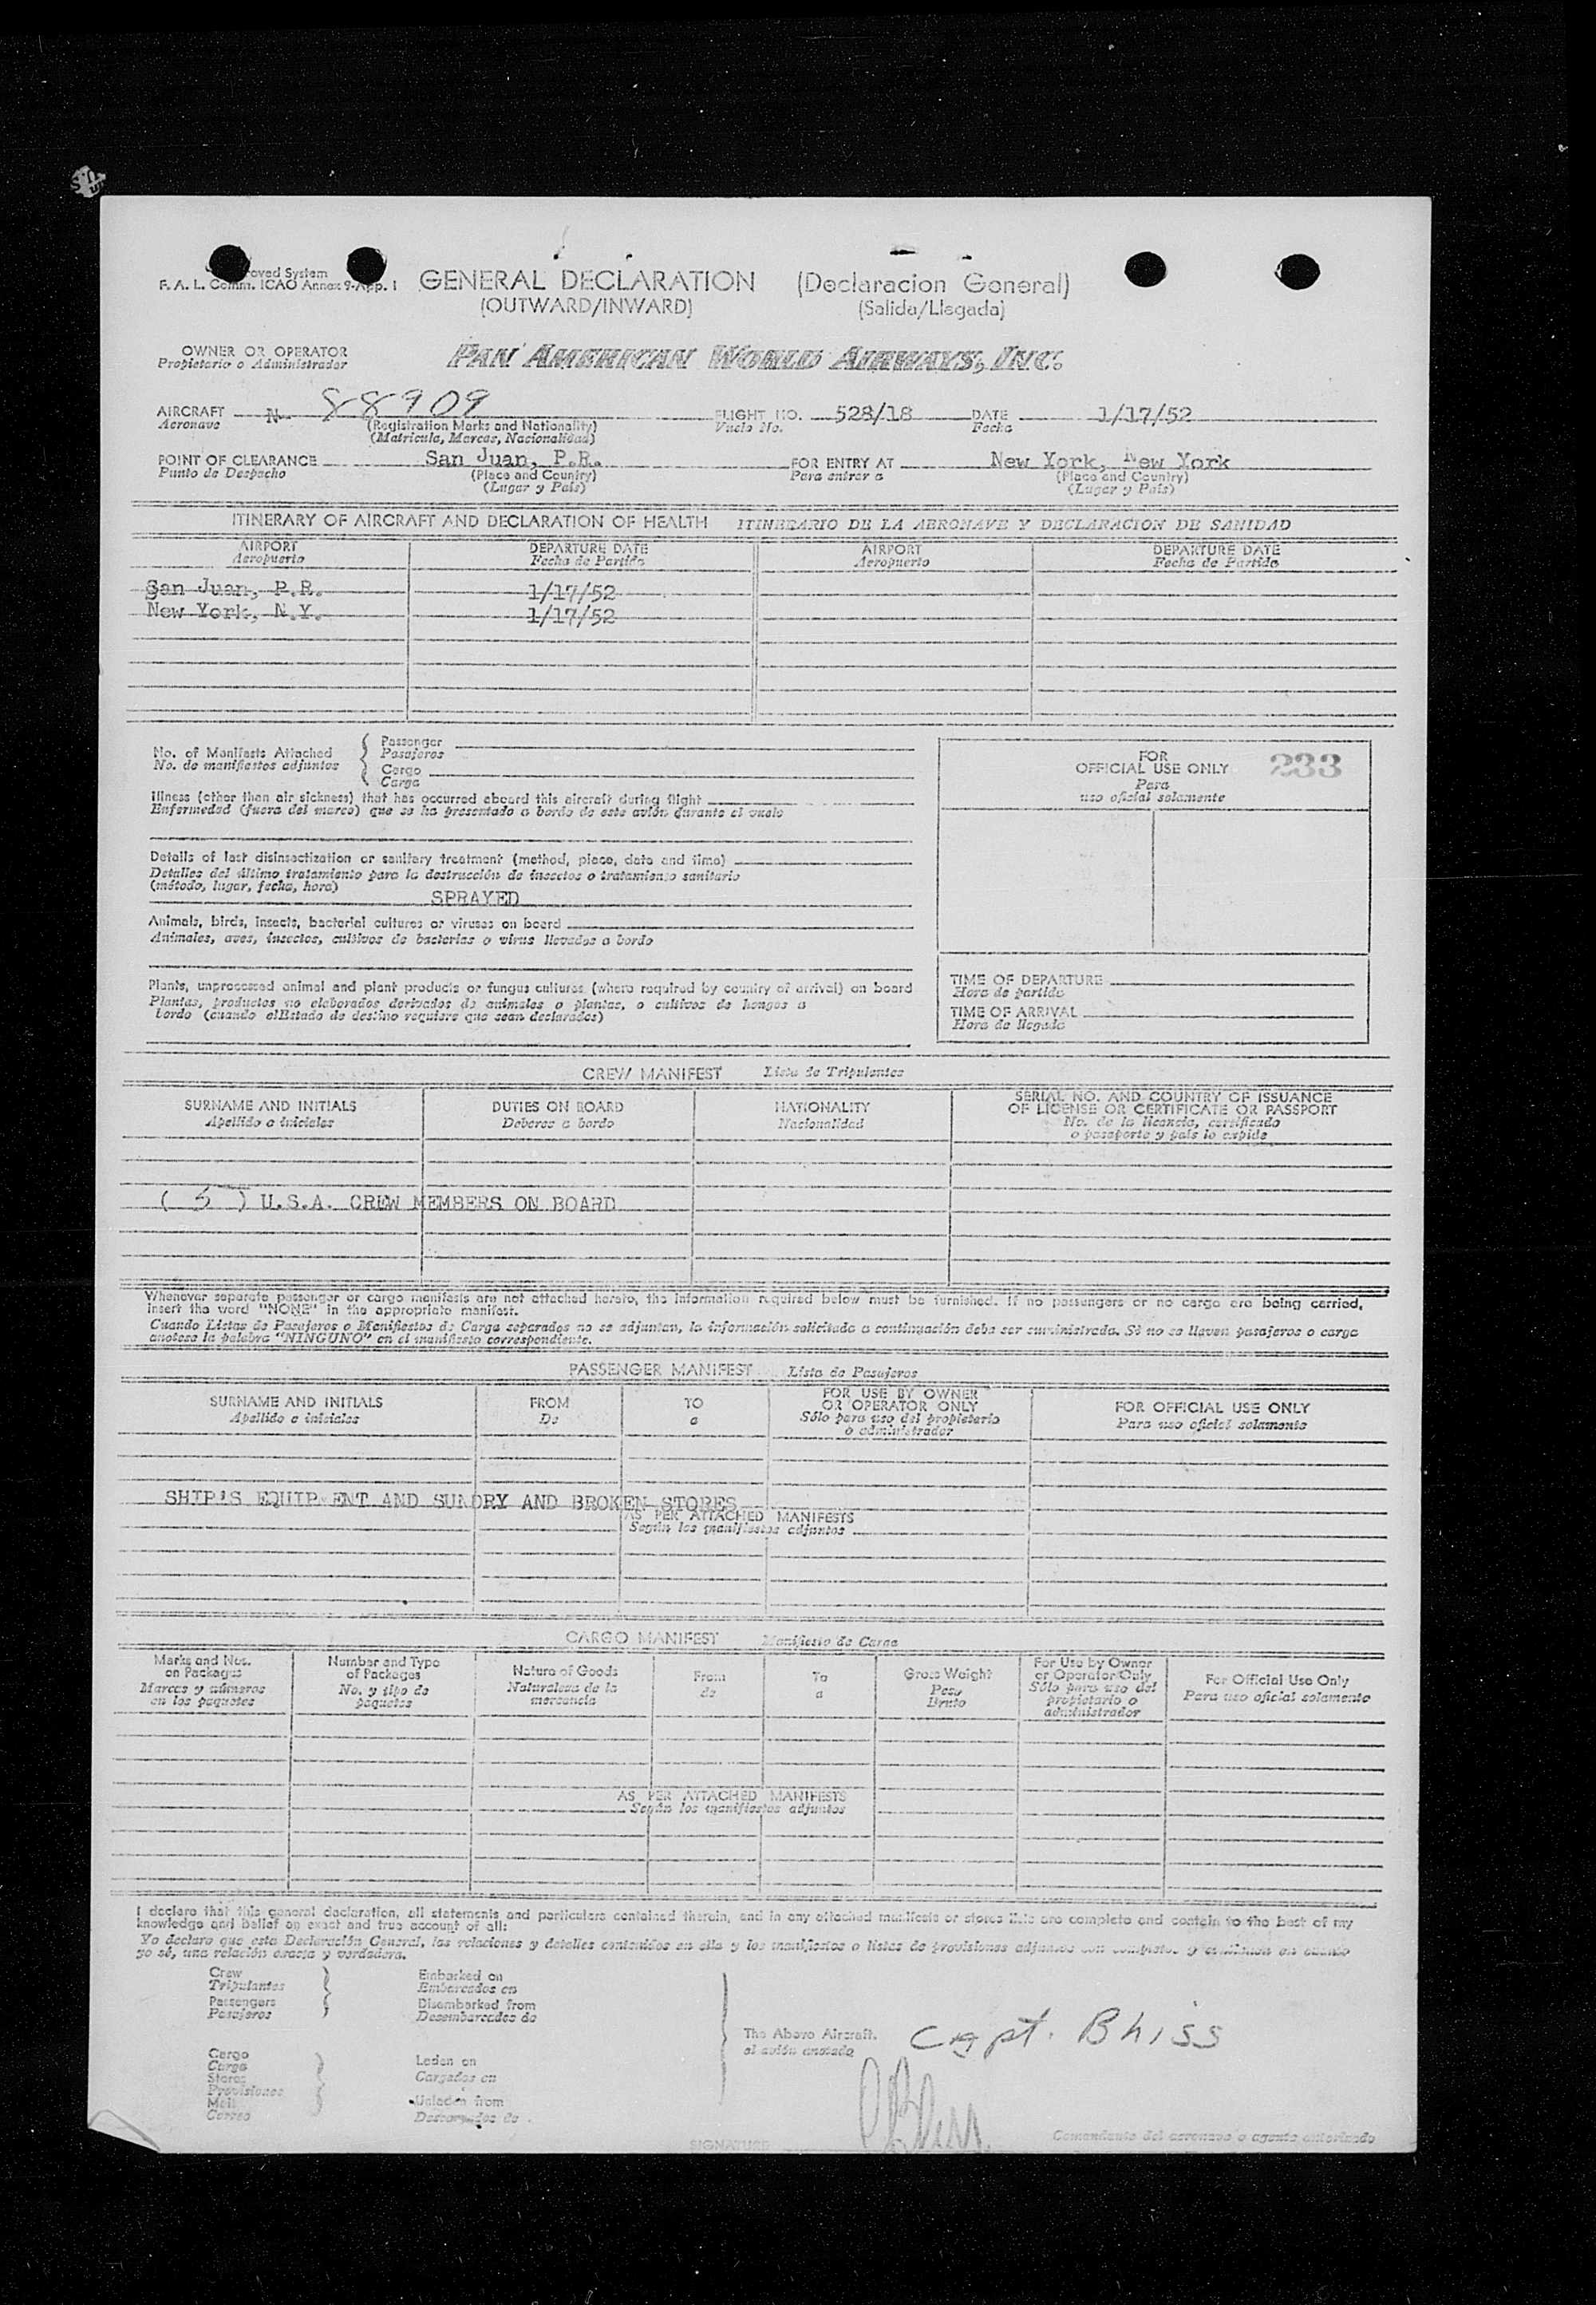 roved System
F. A. L. Comm. ICAO Annex 9-App. 1
GENERAL DECLARATION (Declaracion General)
(OUTWARD/INWARD) (Salida/Llegada)
OWNER OR OPERATOR
Propietario o Administrador
PAN AMERICAN WORLD AIRWAYS, INC.
AIRCRAFT N- 88909 FLIGHT NO. 528/18 DATE 1/17/52
Aeronave (Registration Marks and Nationality) Vuelo No. Fecha
(Matricula, Marcas, Nacionalidad)
POINT OF CLEARANCE San Juan, P.R. FOR ENTRY AT New York, New York
Punto de Despacho (Place and Country) Para entrar a (Place and Country)
(Lugar y País) (Lugar y País)
ITINERARY OF AIRCRAFT AND DECLARATION OF HEALTH ITINERARIO DE LA AERONAVE Y DECLARACION DE SANIDAD
AIRPORT DEPARTURE DATE AIRPORT DEPARTURE DATE
Aeropuerto Fecha de Partida Aeropuerto Fecha de Partida
San Juan, P.R. 1/17/52
New York, N.Y. 1/17/52
No. of Manifests Attached
No. de manifiestos adjuntos
Passenger
Pasajeros
Cargo
Carga
FOR
OFFICIAL USE ONLY
Para
uso oficial solamente
233
Illness (other than air sickness) that has occurred aboard this aircraft during flight
Enfermedad (fuera del mareo) que se ha presentado a bordo de este avión durante el vuelo
Details of last disinsectization or sanitary treatment (method, place, date and time)
Detalles del último tratamiento para la destrucción de insectos o tratamiento sanitario
(método, lugar, fecha, hora)
SPRAYED
Animals, birds, insects, bacterial cultures or viruses on board
Animales, aves, insectos, cultivos de bacterias o virus llevados a bordo
Plants, unprocessed animal and plant products or fungus cultures (where required by country of arrival) on board
Plantas, productos no elaborados derivados de animales o plantas, o cultivos de hongos a
bordo (cuando elEstado de destino requiere que sean declarados)
TIME OF DEPARTURE
Hora de partida
TIME OF ARRIVAL
Hora de llegada
CREW MANIFEST Lista de Tripulantes
SURNAME AND INITIALS DUTIES ON BOARD NATIONALITY SERIAL NO. AND COUNTRY OF ISSUANCE
OF LICENSE OR CERTIFICATE OR PASSPORT
Apellido e iniciales Deberes a bordo Nacionalidad No. de la licencia, certificado
o pasaporte y país lo expide
( 5 ) U.S.A. CREW MEMBERS ON BOARD
Whenever separate passenger or cargo manifests are not attached hereto, the information required below must be furnished. If no passengers or no cargo are being carried,
insert the word "NONE" in the appropriate manifest.
Cuando Listas de Pasajeros o Manifiestos de Carga separados no se adjuntan, la información solicitada a continuación debe ser suministrada. Si no se llevan pasajeros o carga
anotese la palabra "NINGUNO" en el manifiesto correspondiente.
PASSENGER MANIFEST Lista de Pasajeros
SURNAME AND INITIALS FROM TO FOR USE BY OWNER
OR OPERATOR ONLY FOR OFFICIAL USE ONLY
Apellido e iniciales De a Sólo para uso del propietario
o administrador Para uso oficial solamente
SHIP'S EQUIP ENT AND SUNDRY AND BROKEN STORES
AS PER ATTACHED MANIFESTS
Según los manifiestos adjuntos
CARGO MANIFEST Manifiesto de Carga
Marks and Nos.
on Packages
Marcas y números
en los paquetes
Number and Type
of Packages
No. y tipo de
paquetes
Nature of Goods
Naturaleza de la
mercancia
From
de
To
a
Gross Weight
Peso
Bruto
For Use by Owner
or Operator Only
Sólo para uso del
propietario o
administrador
For Official Use Only
Para uso oficial solamente
AS PER ATTACHED MANIFESTS
Según los manifiestos adjuntos
I declare that this general declaration, all statements and particulars contained therein, and in any attached manifests or stores lists are complete and contain to the best of my
knowledge and belief an exact and true account of all:
Yo declaro que esta Declaración General, las relaciones y detalles contenidos en ella y los manifiestos o listas de provisiones adjuntos son completos y contienen en cuanto
yo sé, una relación exacta y verdadera.
Crew
Tripulantes
Passengers
Pasajeros
Embarked on
Embarcados en
Disembarked from
Desembarcados de
Cargo
Carga
Stores
Provisiones
Mail
Correo
Laden on
Cargados en
Unladen from
The Above Aircraft.
el avión anotado
Capt. Bhiss
SIGNATURE
Comandante del aeronave o agente autorizado